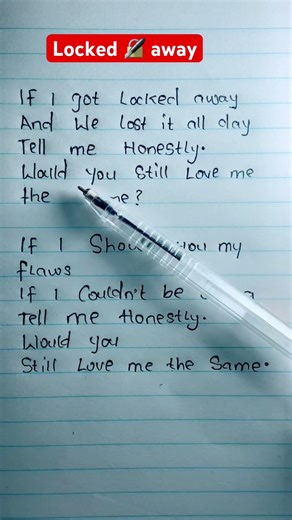 Locked away
If I got Locked away
And We lost it all day
Tell me Honestly.
Would you Still Love me
the ?
If I you my
flaws
If I Couldn't be
Tell me Honestly.
Would you
Still Love me the Same.